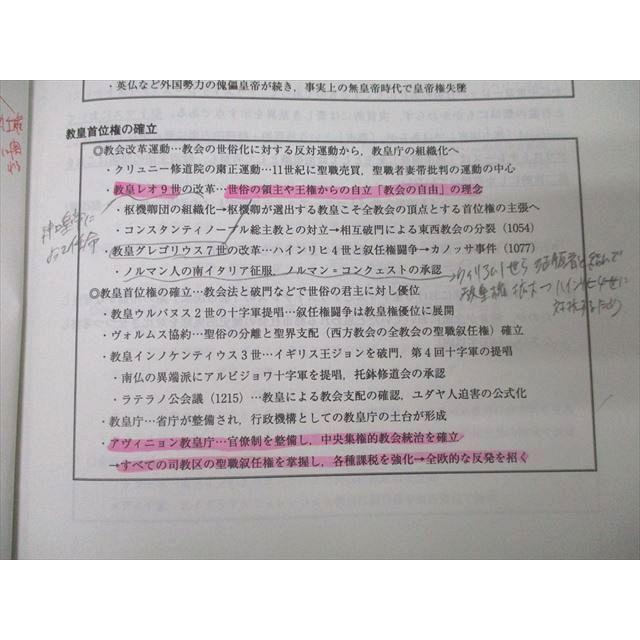 ・英仏など外国勢力の傀儡皇帝が続き，事実上の無皇帝時代で皇帝権失墜
教皇首位権の確立
◎教会改革運動…教会の世俗化に対する反対運動から，教皇庁の組織化へ
・クリュニー修道院の粛正運動…11世紀に聖職売買，聖職者妻帯批判の運動の中心
・教皇レオ９世の改革…世俗の領主や王権からの自立「教会の自由」の理念
・枢機卿団の組織化→枢機卿が選出する教皇こそ全教会の頂点とする首位権の主張へ
・コンスタンティノープル総主教との対立→相互破門による東西教会の分裂（1054）
・教皇グレゴリウス７世の改革…ハインリヒ４世と叙任権闘争→カノッサ事件（1077）
・ノルマン人の南イタリア征服，ノルマン＝コンクェストの承認
◎教皇首位権の確立…教会法と破門などで世俗の君主に対し優位
・教皇ウルバヌス２世の十字軍提唱…叙任権闘争は教皇権優位に展開
・ヴォルムス協約…聖俗の分離と聖界支配（西方教会の全教会の聖職叙任権）確立
・教皇インノケンティウス３世…イギリス王ジョンを破門，第４回十字軍の提唱
・南仏の異端派にアルビジョワ十字軍を提唱，托鉢修道会の承認
・ラテラノ公会議（1215）…教皇による教会支配の確認，ユダヤ人迫害の公式化
・教皇庁…省庁が整備され，行政機構としての教皇庁の土台が形成
・アヴィニョン教皇庁…官僚制を整備し，中央集権的教会統治を確立
→すべての司教区の聖職叙任権を掌握し，各種課税を強化→全欧的な反発を招く